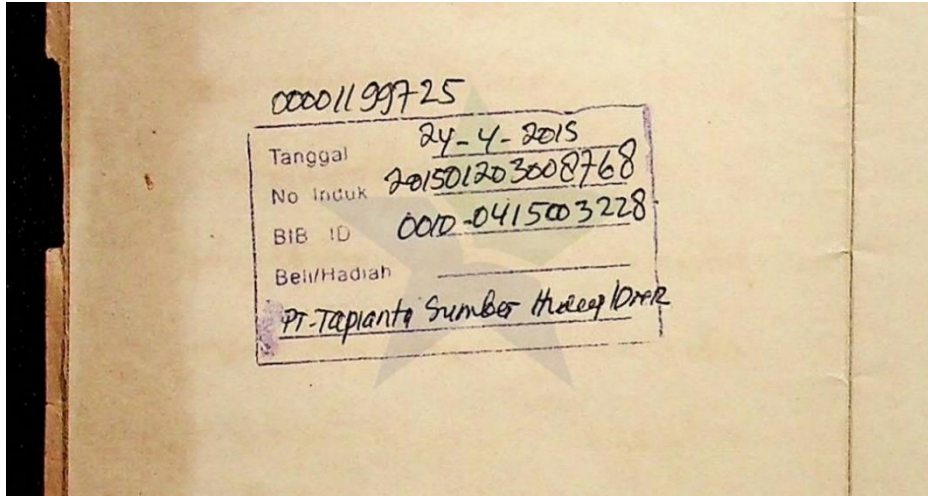 00001199725
Tanggal 24-4-2015
No Induk 201501203008768
BIB ID 0010-0415003228
Beli/Hadiah
PT-Tapianta Sumber